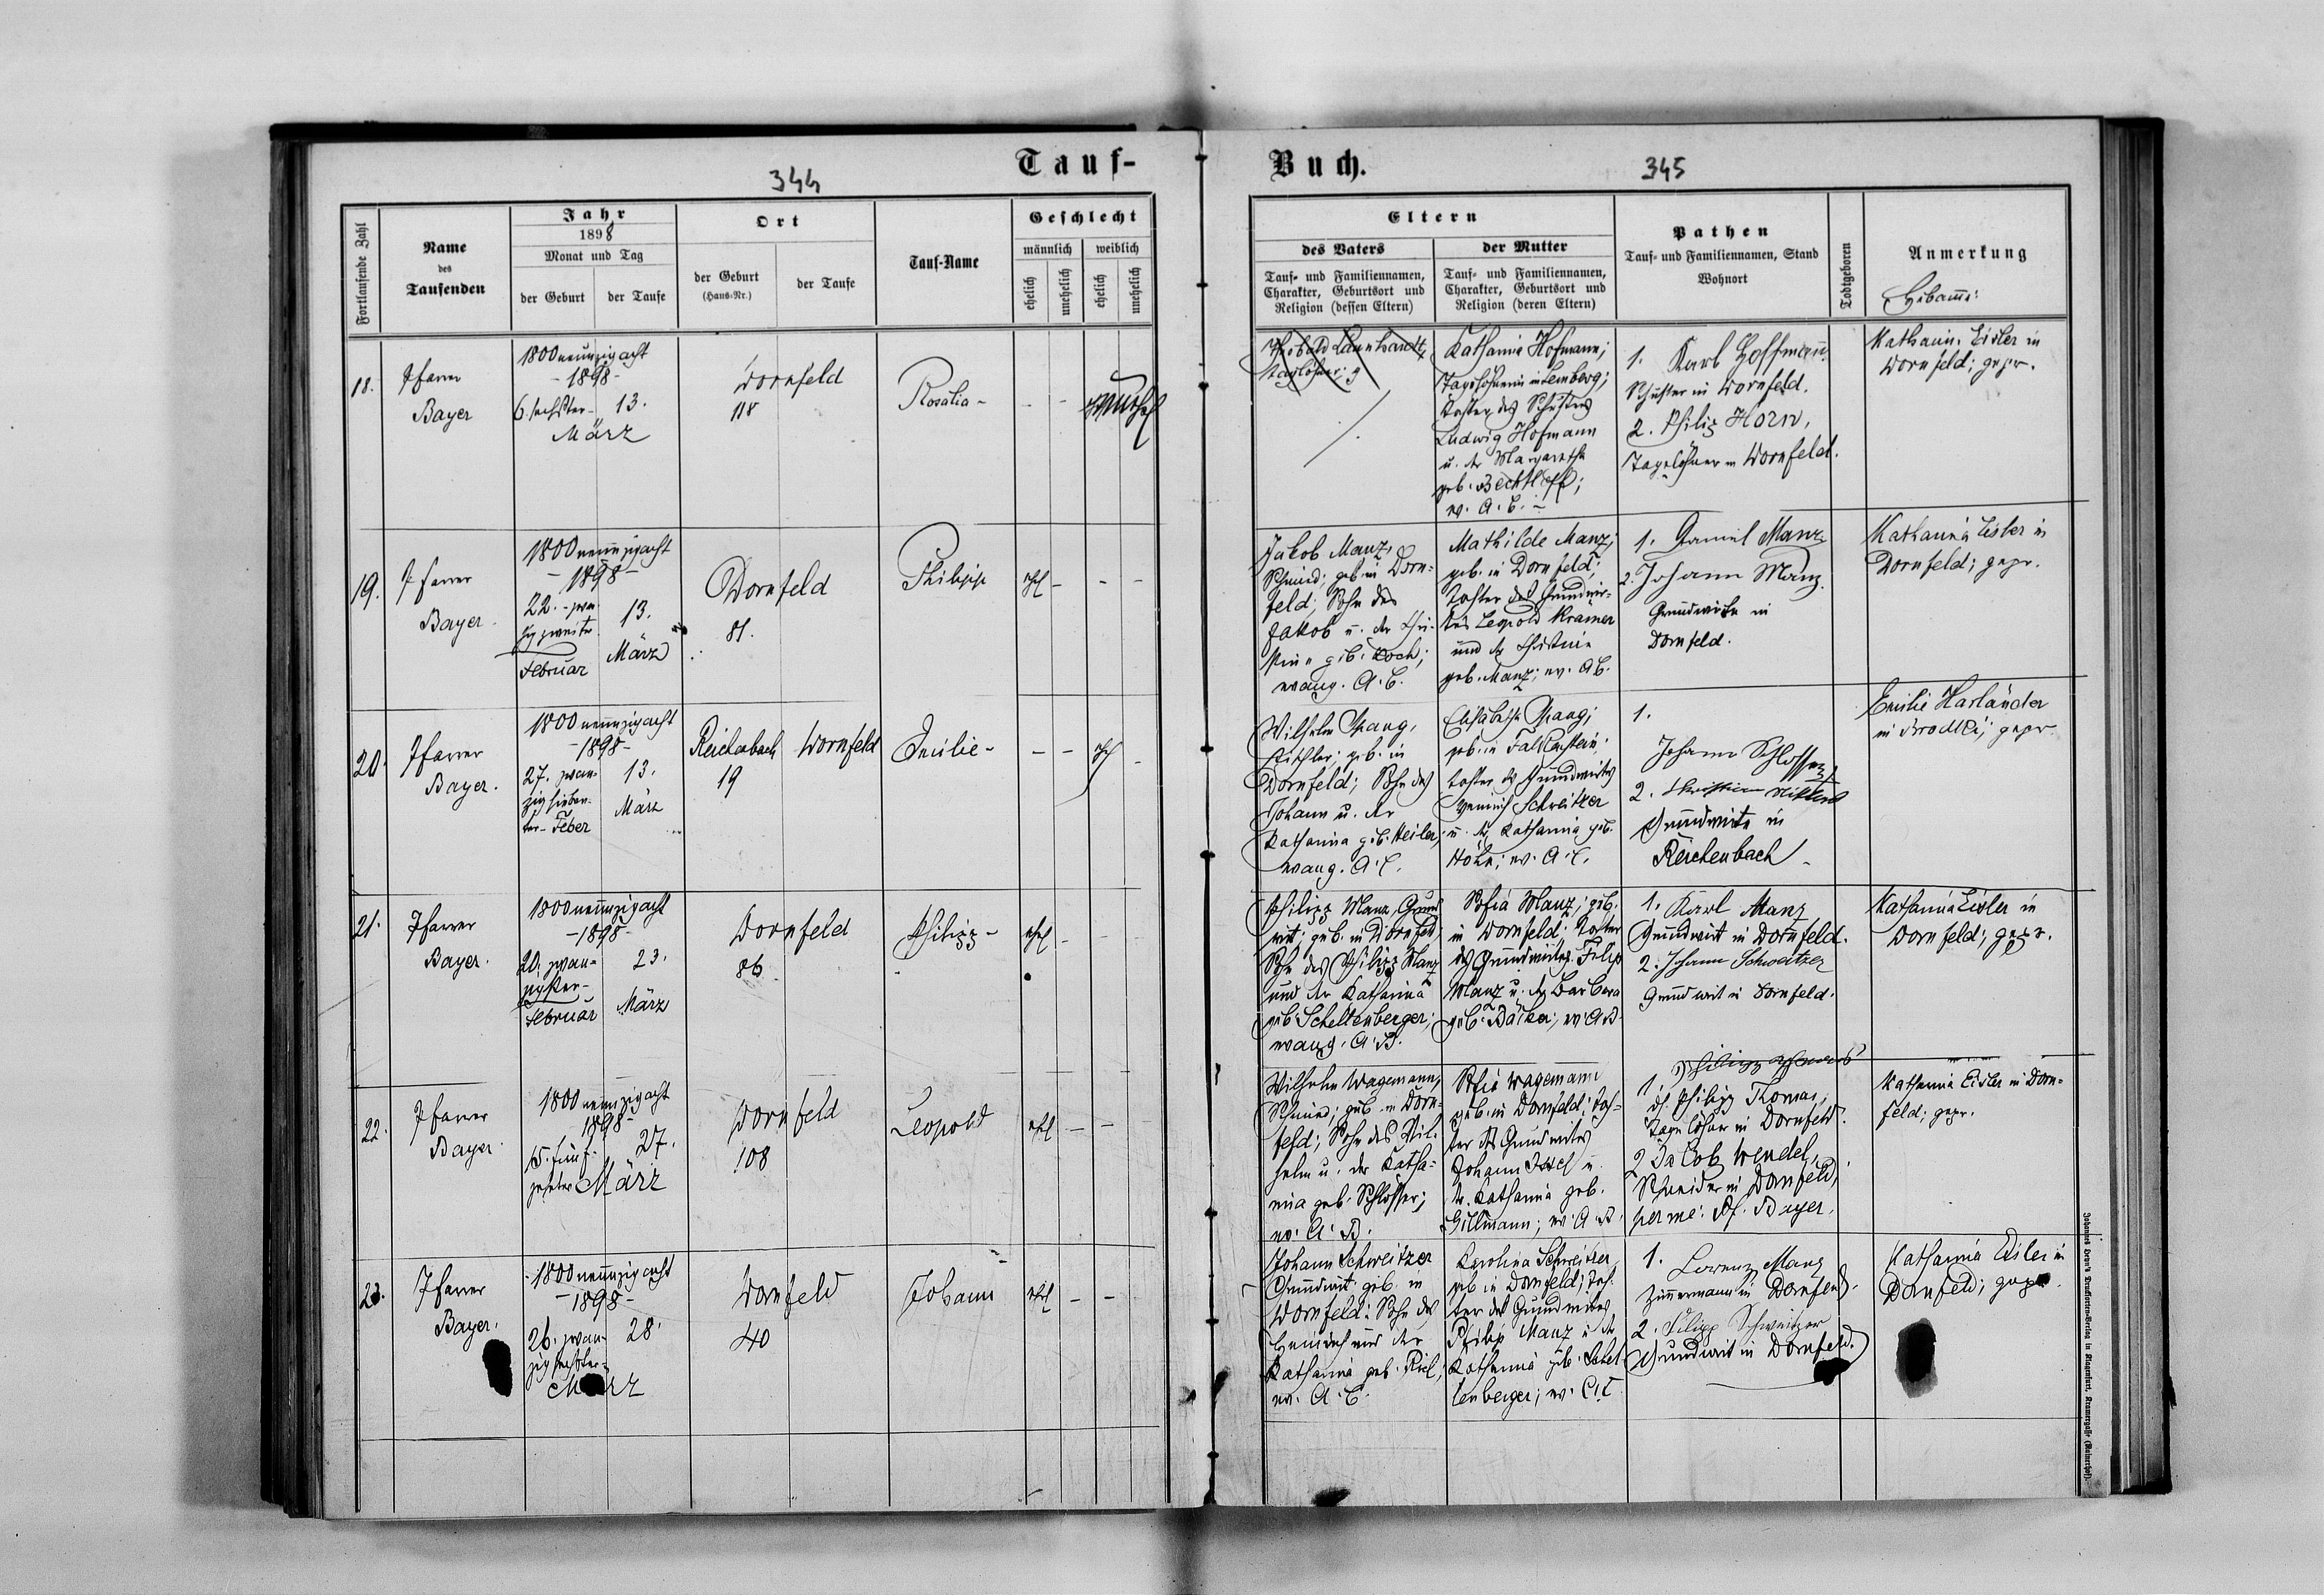 Tauf-
344
Fortlaufende Zahl
Name
des
Taufenden
Jahr
1898
Monat und Tag
der Geburt
der Taufe
Ort
der Geburt
(Haus-Nr.)
der Taufe
Tauf-Name
Geschlecht
männlich
weiblich
ehelich
unehelich
ehelich
unehelich
18.
Pfarrer
Bayer
1800 neunzigacht
-1898-
6. sechster-
13.
März
Dornfeld
118
Rosalia-
19.
Pfarrer
Bayer.
1800 neunzigacht
-1898-
22.-zwan-
zig zweiter
Februar
13.
März
Dornfeld
81.
Philipp
ehel
20.
Pfarrer
Bayer.
1800 neunzigacht
-1898-
27. zwan-
zig sieben-
ter-Feber
13.
März
Reichenbach
19
Dornfeld
21.
Pfarrer
Bayer.
1800 neunzigacht
-1898-
20. zwan-
zigster-
Februar
23.
März
Dornfeld
86
Philipp-
ehel
22.
Pfarrer
Bayer
1800 neunzigacht
1898-
15. fünf-
zehnter
27.
März
Dornfeld
108
Leopold
ehel
23.
Pfarrer
Bayer.
1800 neunzigacht
-1898-
26. zwan-
zig sechster-
28.
März
Dornfeld
40
Johann
ehel
Buch.
345
Eltern
des Vaters
Tauf- und Familiennamen,
Charakter, Geburtsort und
Religion (dessen Eltern)
der Mutter
Tauf- und Familiennamen,
Charakter, Geburtsort und
Religion (deren Eltern)
Pathen
Tauf- und Familiennamen, Stand
Wohnort
Todtgeboren
Anmerkung
Hebamme:
Katharina Hofmann;
Tagelöhnerin in Lemberg;
Tochter des Schusters
Ludwig Hofmann
u. der Margaretha
geb. Bechtloff;
ev. A. C.
1. Karl Hoffmann
Schuster in Dornfeld.
2. Philip Horn,
Tagelöhner in Dornfeld.
Katharina Eisler in
Dornfeld; gepr.
Jakob Manz,
Schmied; geb. in Dorn-
feld; Sohn des
Jakob u. der Chri-
stina geb. Koch;
evang. A. C.
Mathilde Manz;
geb. in Dornfeld;
Tochter des Grundwir-
tes Leopold Krämer
und der Christine
geb. Manz; ev. A B.
1. Daniel Manz
2. Johann Manz
Grundwirte in
Dornfeld.
Katharina Eisler in
Dornfeld; gepr.
Wilhelm
Tischler; geb. in
Dornfeld; Sohn des
Johann u. der
Katharina geb.
evang. A. C.
Elisabeth
geb. in Falkenstein.
Tochter des Grundwirtes
Heinrich Schweitzer
u. der Katharina geb.
Höhn; ev. A. C.
1.
Johann Schlosser
2. Christian
Grundwirte in
Reichenbach
Emilie Harländer
in Brodki; gepr
Philipp Manz, Grund
wirt; geb. in Dornfeld;
Sohn des Philipp Manz
und der Katharina
geb. Schellenberger;
evang. A. B.
Sofia Manz; geb.
in Dornfeld; Tochter
des Grundwirtes Filip
Manz u. der Barbara
geb. Bäcker; ev. A B
1. Karl Manz
Grundwirt in Dornfeld.
2. Johann Schweitzer
Grundwirt in Dornfeld.
Katharina Eisler in
Dornfeld; gepr.
Wilhelm Wagemann,
Schmied; geb. in Dorn-
feld; Sohn des Wil-
helm u. der Katha-
rina geb. Schlosser;
ev. A. B.
Sofia Wagemann
geb. in Dornfeld; Toch-
ter des Grundwirtes
Johann u.
der Katharina geb.
Gillmann; ev. A. B.
1.
Philipp Thomas,
Tagelöhner in Dornfeld.
2 Jakob Wendel,
Schneider in Dornfeld;
per me: Pf. Bayer.
Katharina Eisler in Dorn-
feld; gepr.
Johann Schweitzer
Grundwirt geb. in
Dornfeld: Sohn des
Heinrich und der
Katharina geb.
ev. A. C.
Karolina Schweitzer
geb in Dornfeld; Toch-
ter des Grundwirtes
Philip Manz u. der
Katharina geb. Schel-
lenberger; ev. A C
1. Lorenz Manz
Zimmermann in Dornfeld.
2. Filipp Schweitzer
Grundwirt in Dornfeld.
Katharina Eisler in
Dornfeld; gepr.